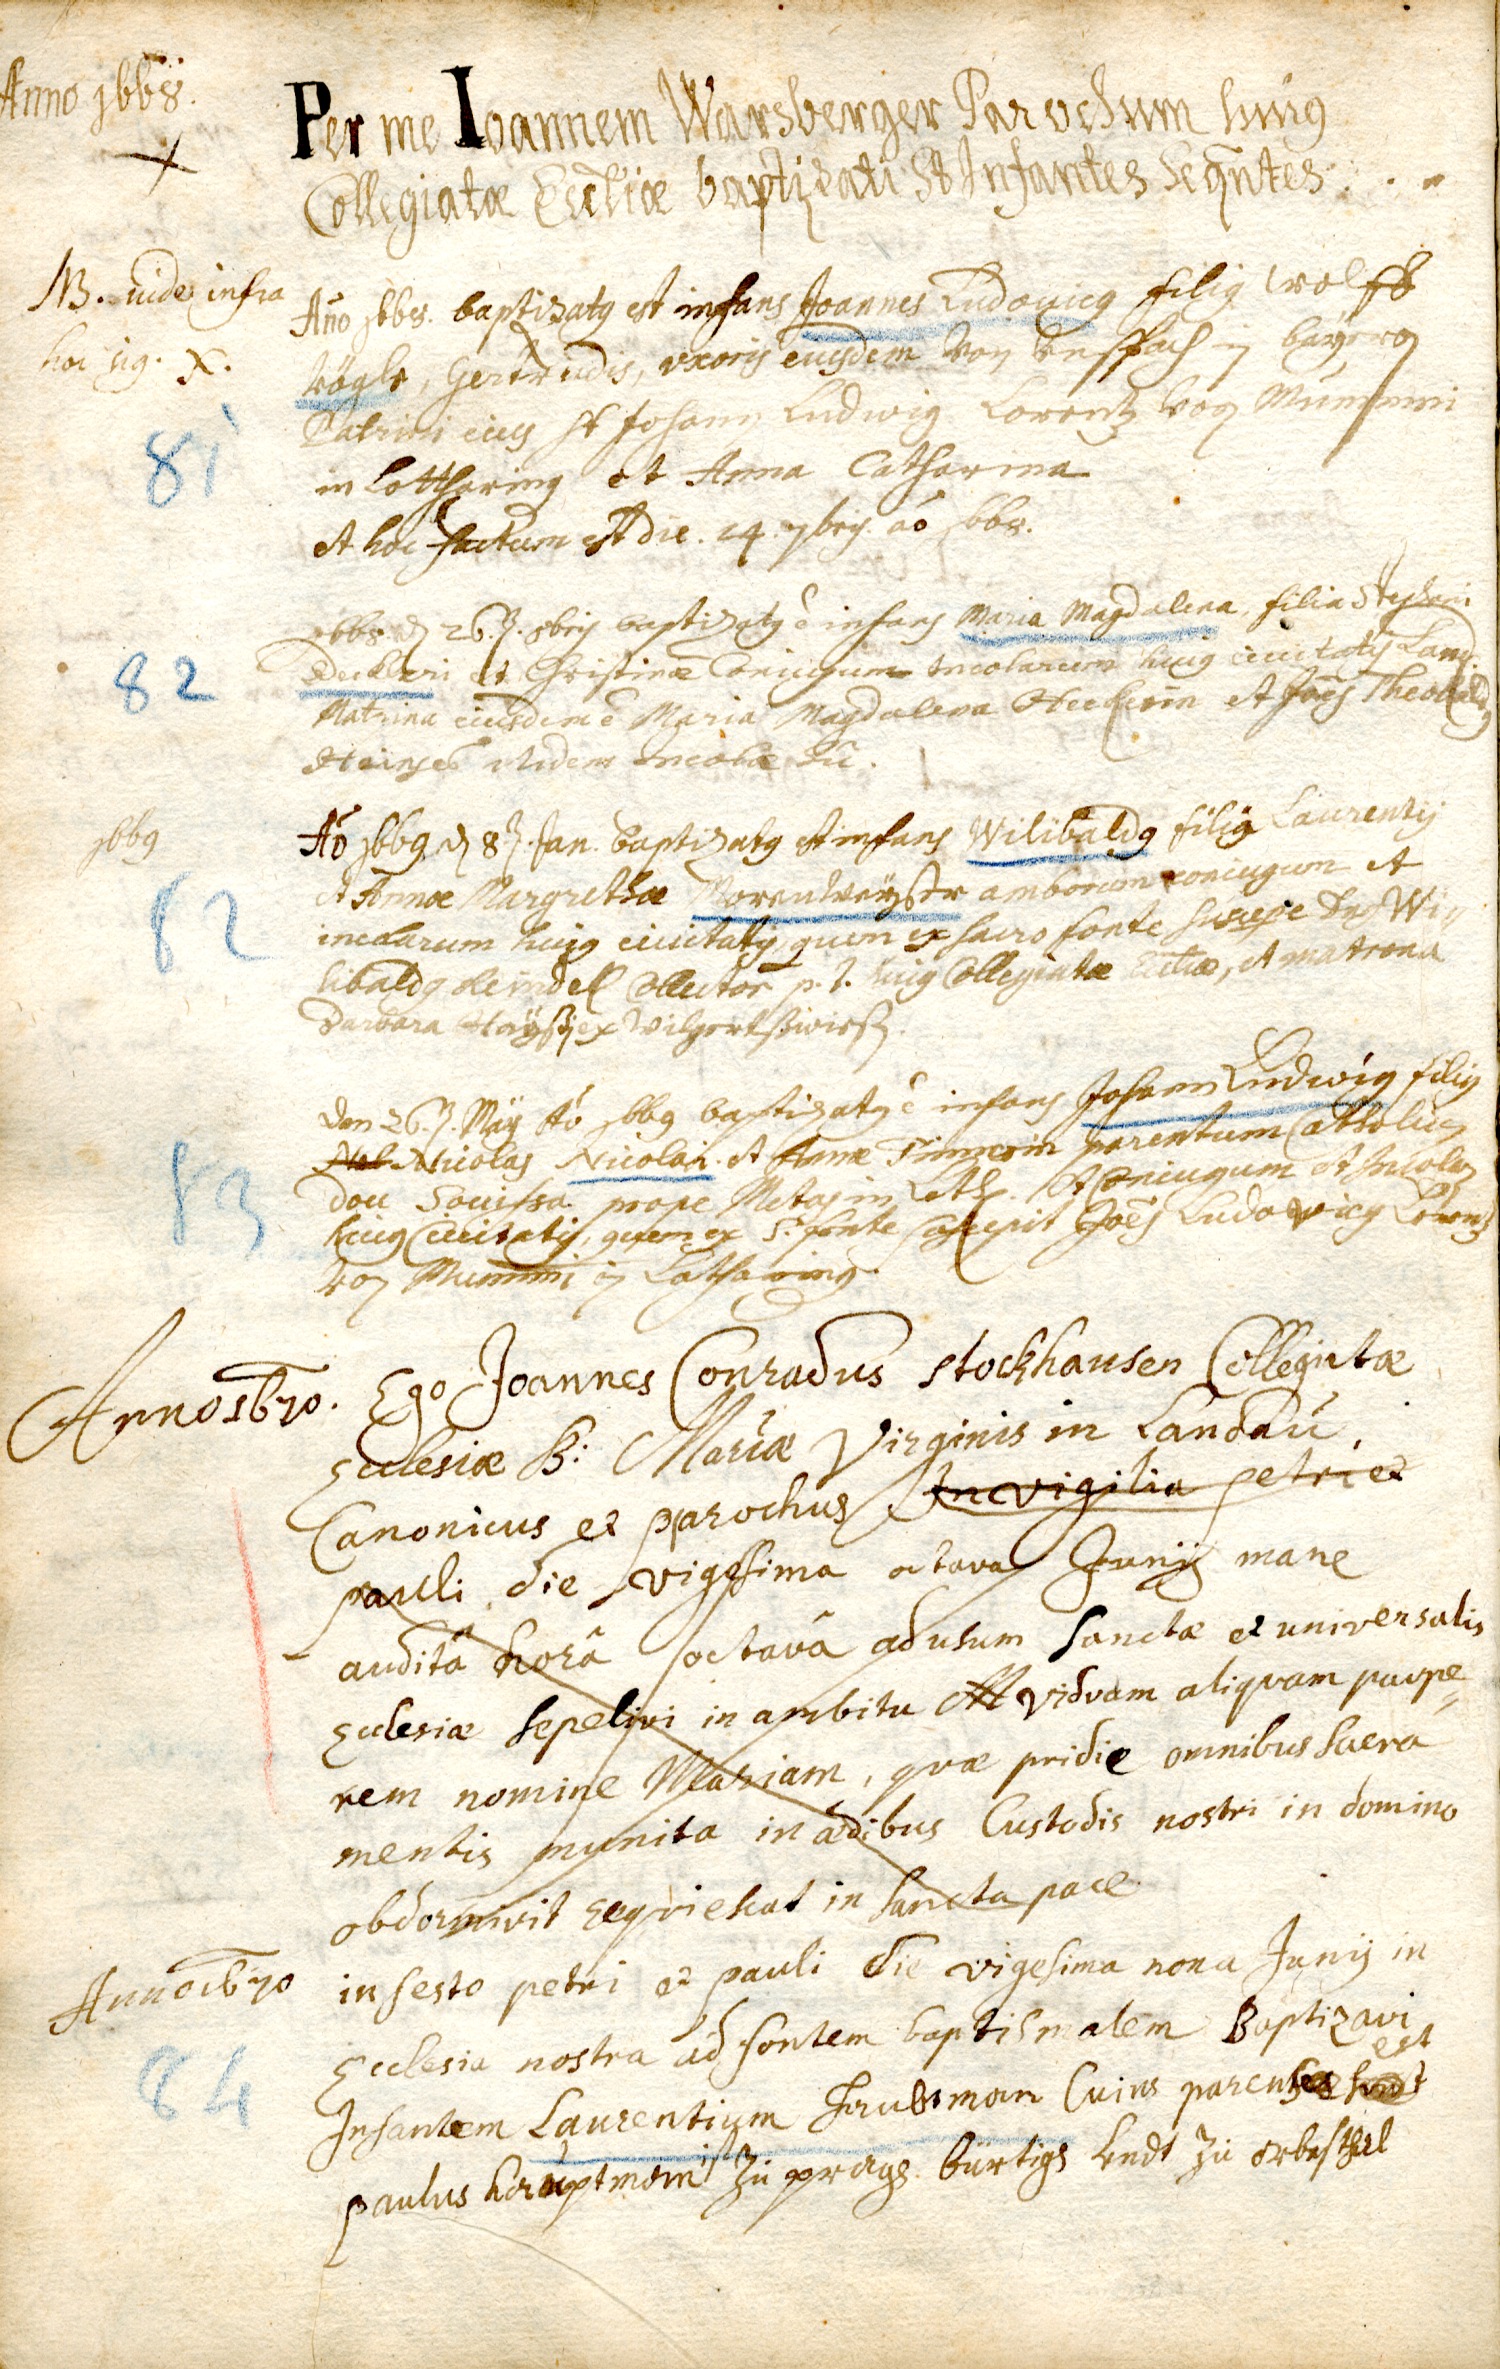 Anno 1668.
Per me Ioannem Warsberger Parochum huig
Collegiatæ Eccliæ baptizati st Infantes Seqntes.
NB. uide infra
hoc sig. X.
Año 1668. baptizatg est infans Joannes Ludovicg filig Wolff
Vögle, Gertrudis, vxoris eiusdem Von in bayern
Patrini eius st Johann Ludwig Lorentz von Mummi
in Lottharing et Anna Catharina
81
et hoc factum est die. 14. 7bris. aō 1668.
1668 d 26. 8bris baptizatg ē infans Maria Magdalena, filia Stephani
82
Deckeri et Christinæ Coniugum incolarum huig ciuitatis Land.
Matrina eiusdem ē Maria Magdalena et Joēs Theobaldg
ibidem incolæ
1669
Aō 1669 d 8. Jan. baptizatg est infans Wilibaldg filig Laurentij
et Annæ Margrethæ amborum coniugum et
82
incolarum huig ciuitatis, quem ex sacro fonte suscepit Dns Wi
libaldg Reindel Collector p. t. huig Collegiatæ Eccliæ, et matrona
Barbara ex Wilgertswiesen.
Den 26. Maÿ Aō 1669 baptizatg ē infans Johann Ludwig filig
Nicolas Nicolai et Annæ parentum
83
prope Metas in Loth. et Coniugum et Incolar
huig Ciuitatis, quem ex S. fonte suscepit Joēs Ludowicg Lorentz
von Mummi in Lotharing.
Anno 1670.
Ego Joannes Conradus Stockhausen Collegiatæ
Ecclesiæ B: Mariæ Virginis in Landau
Canonicus et parochus In vigilia petri et
pauli die vigesima octava Junij mane
auditâ horâ octavâ ad usum Sanctæ et universalis
Ecclesiæ sepelivi in ambitu viduam aliquam paupe
rem nomine Mariam, quæ pridie omnibus sacra
mentis munita in ædibus Custodis nostri in domino
obdormivit requiescat in sancta pace
Anno 1670
in festo petri et pauli die vigesima nona Junij in
Ecclesia nostra ad fontem baptismalem Baptizavi
84
est
Infantem Laurentium Cuius parens
paulus hauptman zu prage bürtig undt zu